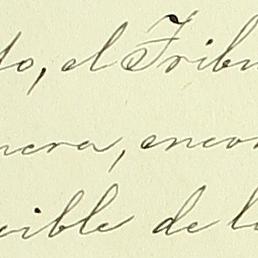 do, el Tribu
nera, encon
cible de l